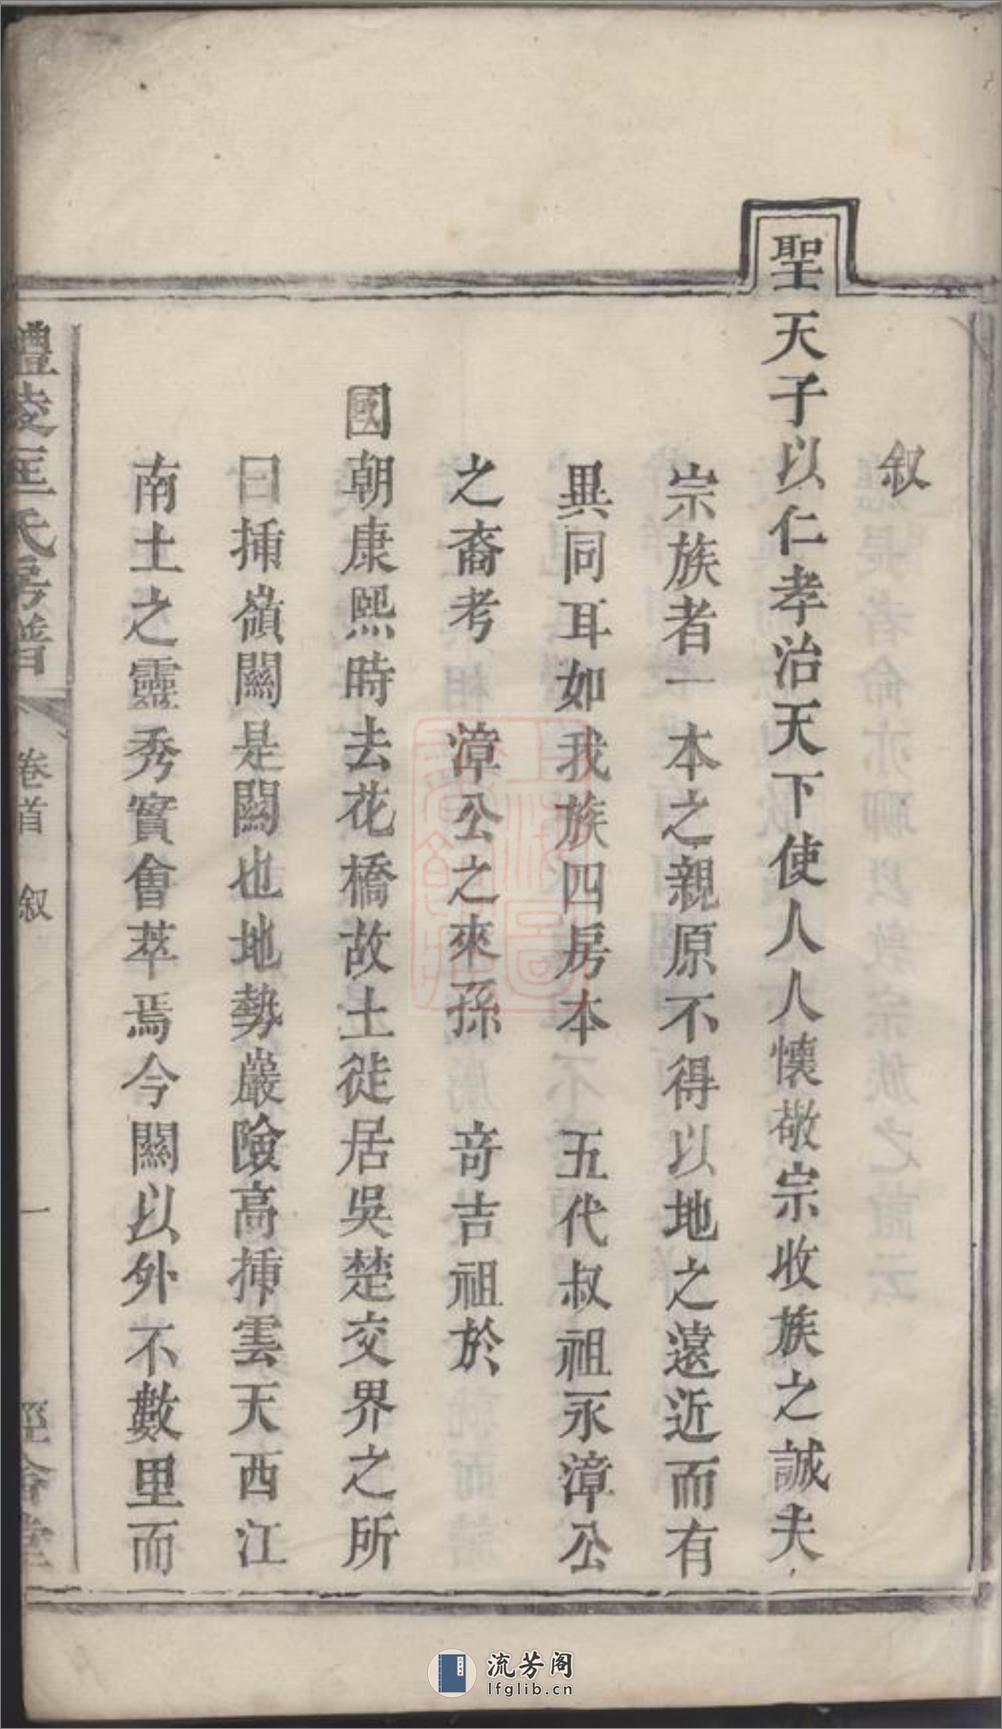 叙
聖天子以仁孝治天下使人人懷敬宗收族之誠夫
宗族者一本之親原不得以地之遠近而有
異同耳如我族四房本　五代叔祖永漳公
之裔考　漳公之來孫　奇吉祖於
國朝康熙時去花橋故土徙居吳楚交界之所
曰揷嶺關是關也地勢嚴險高揷雲天西江
南土之靈秀實會萃焉今關以外不數里而
醴陵匡氏房譜
卷首
叙
一
流芳阁
lfglib.cn